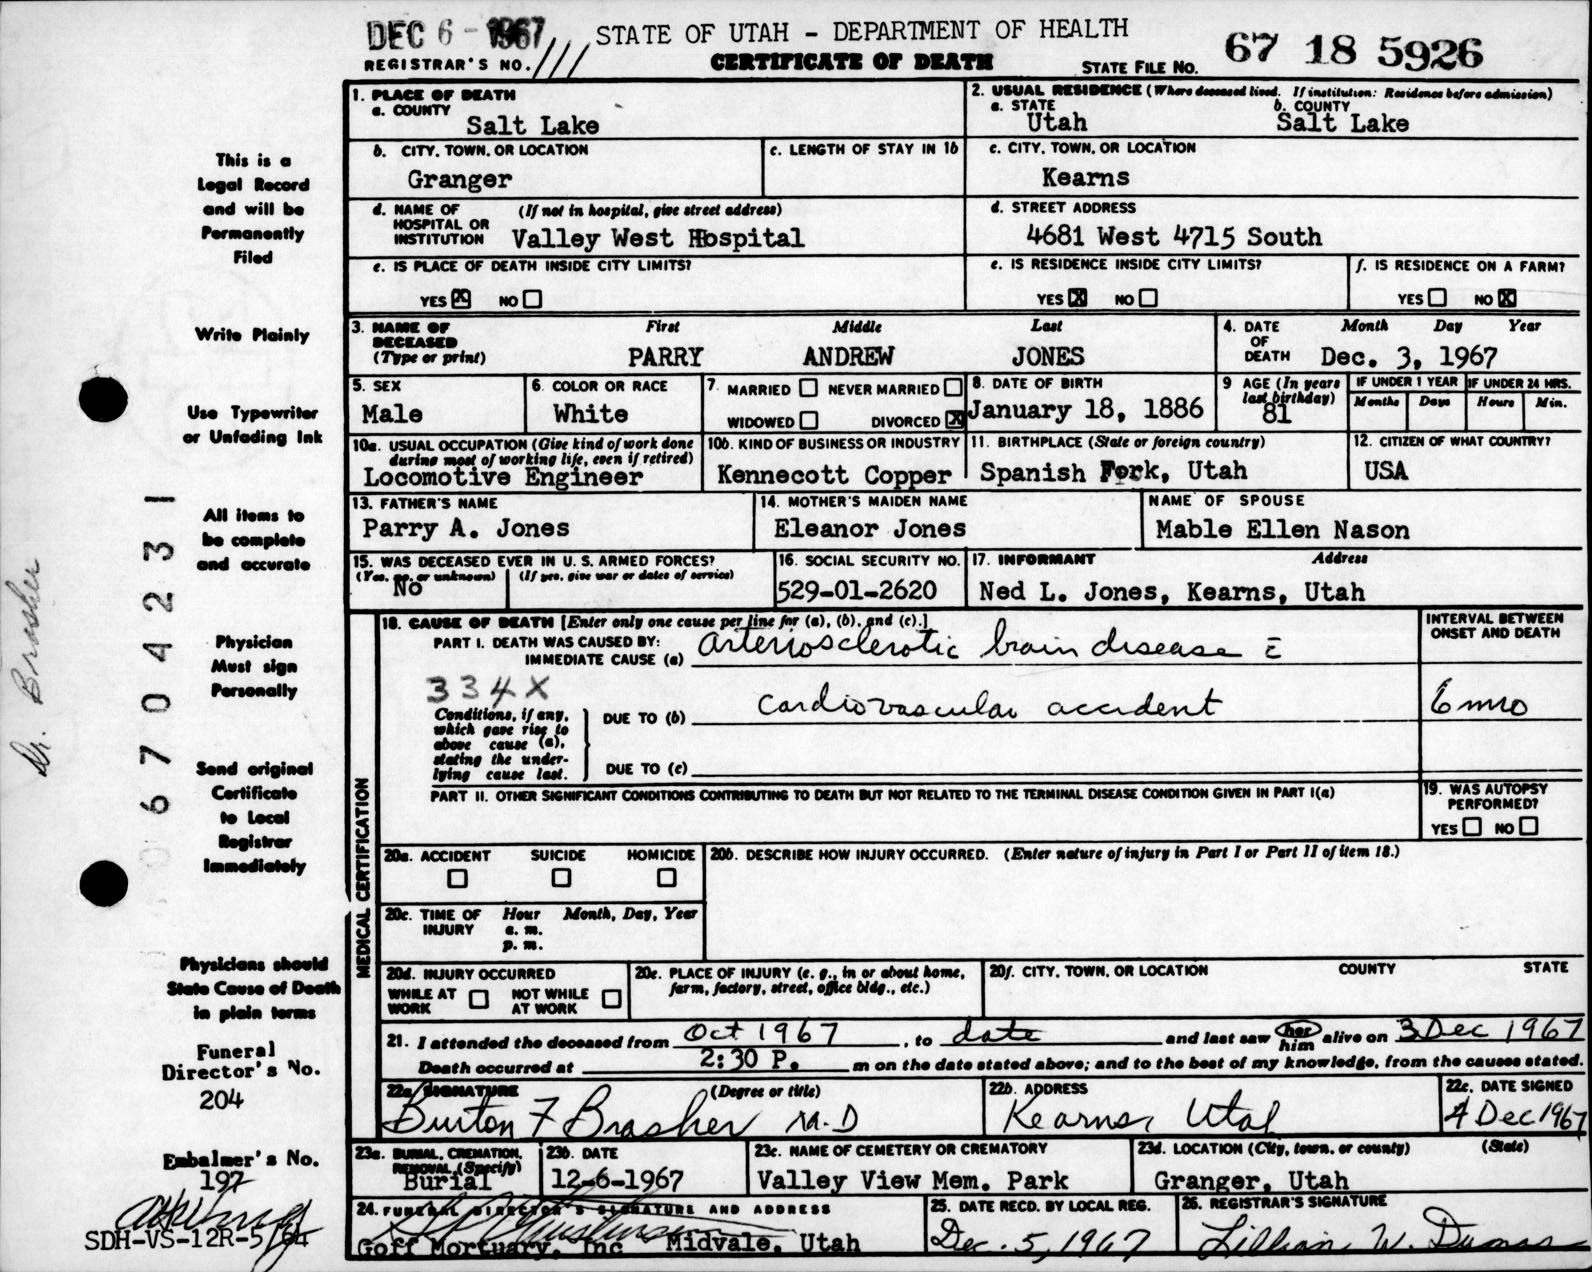 DEC 6 - 1967
STATE OF UTAH - DEPARTMENT OF HEALTH
REGISTRAR'S NO. 111
CERTIFICATE OF DEATH
STATE FILE NO. 67 18 5926
1. PLACE OF DEATH
a. COUNTY
Salt Lake
2. USUAL RESIDENCE (Where deceased lived. If institution: Residence before admission)
a. STATE
Utah
b. COUNTY
Salt Lake
b. CITY, TOWN, OR LOCATION
Granger
c. LENGTH OF STAY IN 1b
c. CITY, TOWN, OR LOCATION
Kearns
d. NAME OF HOSPITAL OR INSTITUTION
(If not in hospital, give street address)
Valley West Hospital
d. STREET ADDRESS
4681 West 4715 South
e. IS PLACE OF DEATH INSIDE CITY LIMITS?
YES X NO
e. IS RESIDENCE INSIDE CITY LIMITS?
YES X NO
f. IS RESIDENCE ON A FARM?
YES NO X
3. NAME OF DECEASED (Type or print)
First Middle Last
PARRY ANDREW JONES
4. DATE OF DEATH
Month Day Year
Dec. 3, 1967
5. SEX
Male
6. COLOR OR RACE
White
7. MARRIED NEVER MARRIED
WIDOWED DIVORCED X
8. DATE OF BIRTH
January 18, 1886
9 AGE (In years last birthday)
81
IF UNDER 1 YEAR
Months Days
IF UNDER 24 HRS.
Hours Min.
10a. USUAL OCCUPATION (Give kind of work done during most of working life, even if retired)
Locomotive Engineer
10b. KIND OF BUSINESS OR INDUSTRY
Kennecott Copper
11. BIRTHPLACE (State or foreign country)
Spanish Fork, Utah
12. CITIZEN OF WHAT COUNTRY?
USA
13. FATHER'S NAME
Parry A. Jones
14. MOTHER'S MAIDEN NAME
Eleanor Jones
NAME OF SPOUSE
Mable Ellen Nason
15. WAS DECEASED EVER IN U. S. ARMED FORCES?
(Yes, no, or unknown) (If yes, give war or dates of service)
No
16. SOCIAL SECURITY NO.
529-01-2620
17. INFORMANT Address
Ned L. Jones, Kearns, Utah
MEDICAL CERTIFICATION
18. CAUSE OF DEATH [Enter only one cause per line for (a), (b), and (c).]
PART I. DEATH WAS CAUSED BY:
IMMEDIATE CAUSE (a) arteriosclerotic brain disease c̄
INTERVAL BETWEEN ONSET AND DEATH
334X
Conditions, if any, which gave rise to above cause (a), stating the underlying cause last.
DUE TO (b) cardiovascular accident
6 mo
DUE TO (c)
PART II. OTHER SIGNIFICANT CONDITIONS CONTRIBUTING TO DEATH BUT NOT RELATED TO THE TERMINAL DISEASE CONDITION GIVEN IN PART I(a)
19. WAS AUTOPSY PERFORMED?
YES NO
20a. ACCIDENT SUICIDE HOMICIDE
20b. DESCRIBE HOW INJURY OCCURRED. (Enter nature of injury in Part I or Part II of item 18.)
20c. TIME OF INJURY
Hour Month, Day, Year
a. m.
p. m.
20d. INJURY OCCURRED
WHILE AT WORK NOT WHILE AT WORK
20e. PLACE OF INJURY (e. g., in or about home, farm, factory, street, office bldg., etc.)
20f. CITY, TOWN, OR LOCATION COUNTY STATE
21. I attended the deceased from Oct 1967, to date and last saw her him alive on 3 Dec 1967
Death occurred at 2:30 P. m on the date stated above; and to the best of my knowledge, from the causes stated.
22a. SIGNATURE (Degree or title)
Burton F Brasher M.D
22b. ADDRESS
Kearns, Utah
22c. DATE SIGNED
4 Dec 1967
23a. BURIAL, CREMATION, REMOVAL (Specify)
Burial
23b. DATE
12-6-1967
23c. NAME OF CEMETERY OR CREMATORY
Valley View Mem. Park
23d. LOCATION (City, town, or county) (State)
Granger, Utah
24. FUNERAL DIRECTOR'S SIGNATURE AND ADDRESS
Goff Mortuary, Inc Midvale, Utah
25. DATE RECD. BY LOCAL REG.
Dec. 5, 1967
26. REGISTRAR'S SIGNATURE
Lillian W. Dumas
This is a
Legal Record
and will be
Permanently
Filed
Write Plainly
Use Typewriter
or Unfading Ink
All items to
be complete
and accurate
Physician
Must sign
Personally
Send original
Certificate
to Local
Registrar
Immediately
Physicians should
State Cause of Death
in plain terms
Funeral
Director's No.
204
Embalmer's No.
197
SDH-VS-12R-5/64
Dr. Brasher
06704231